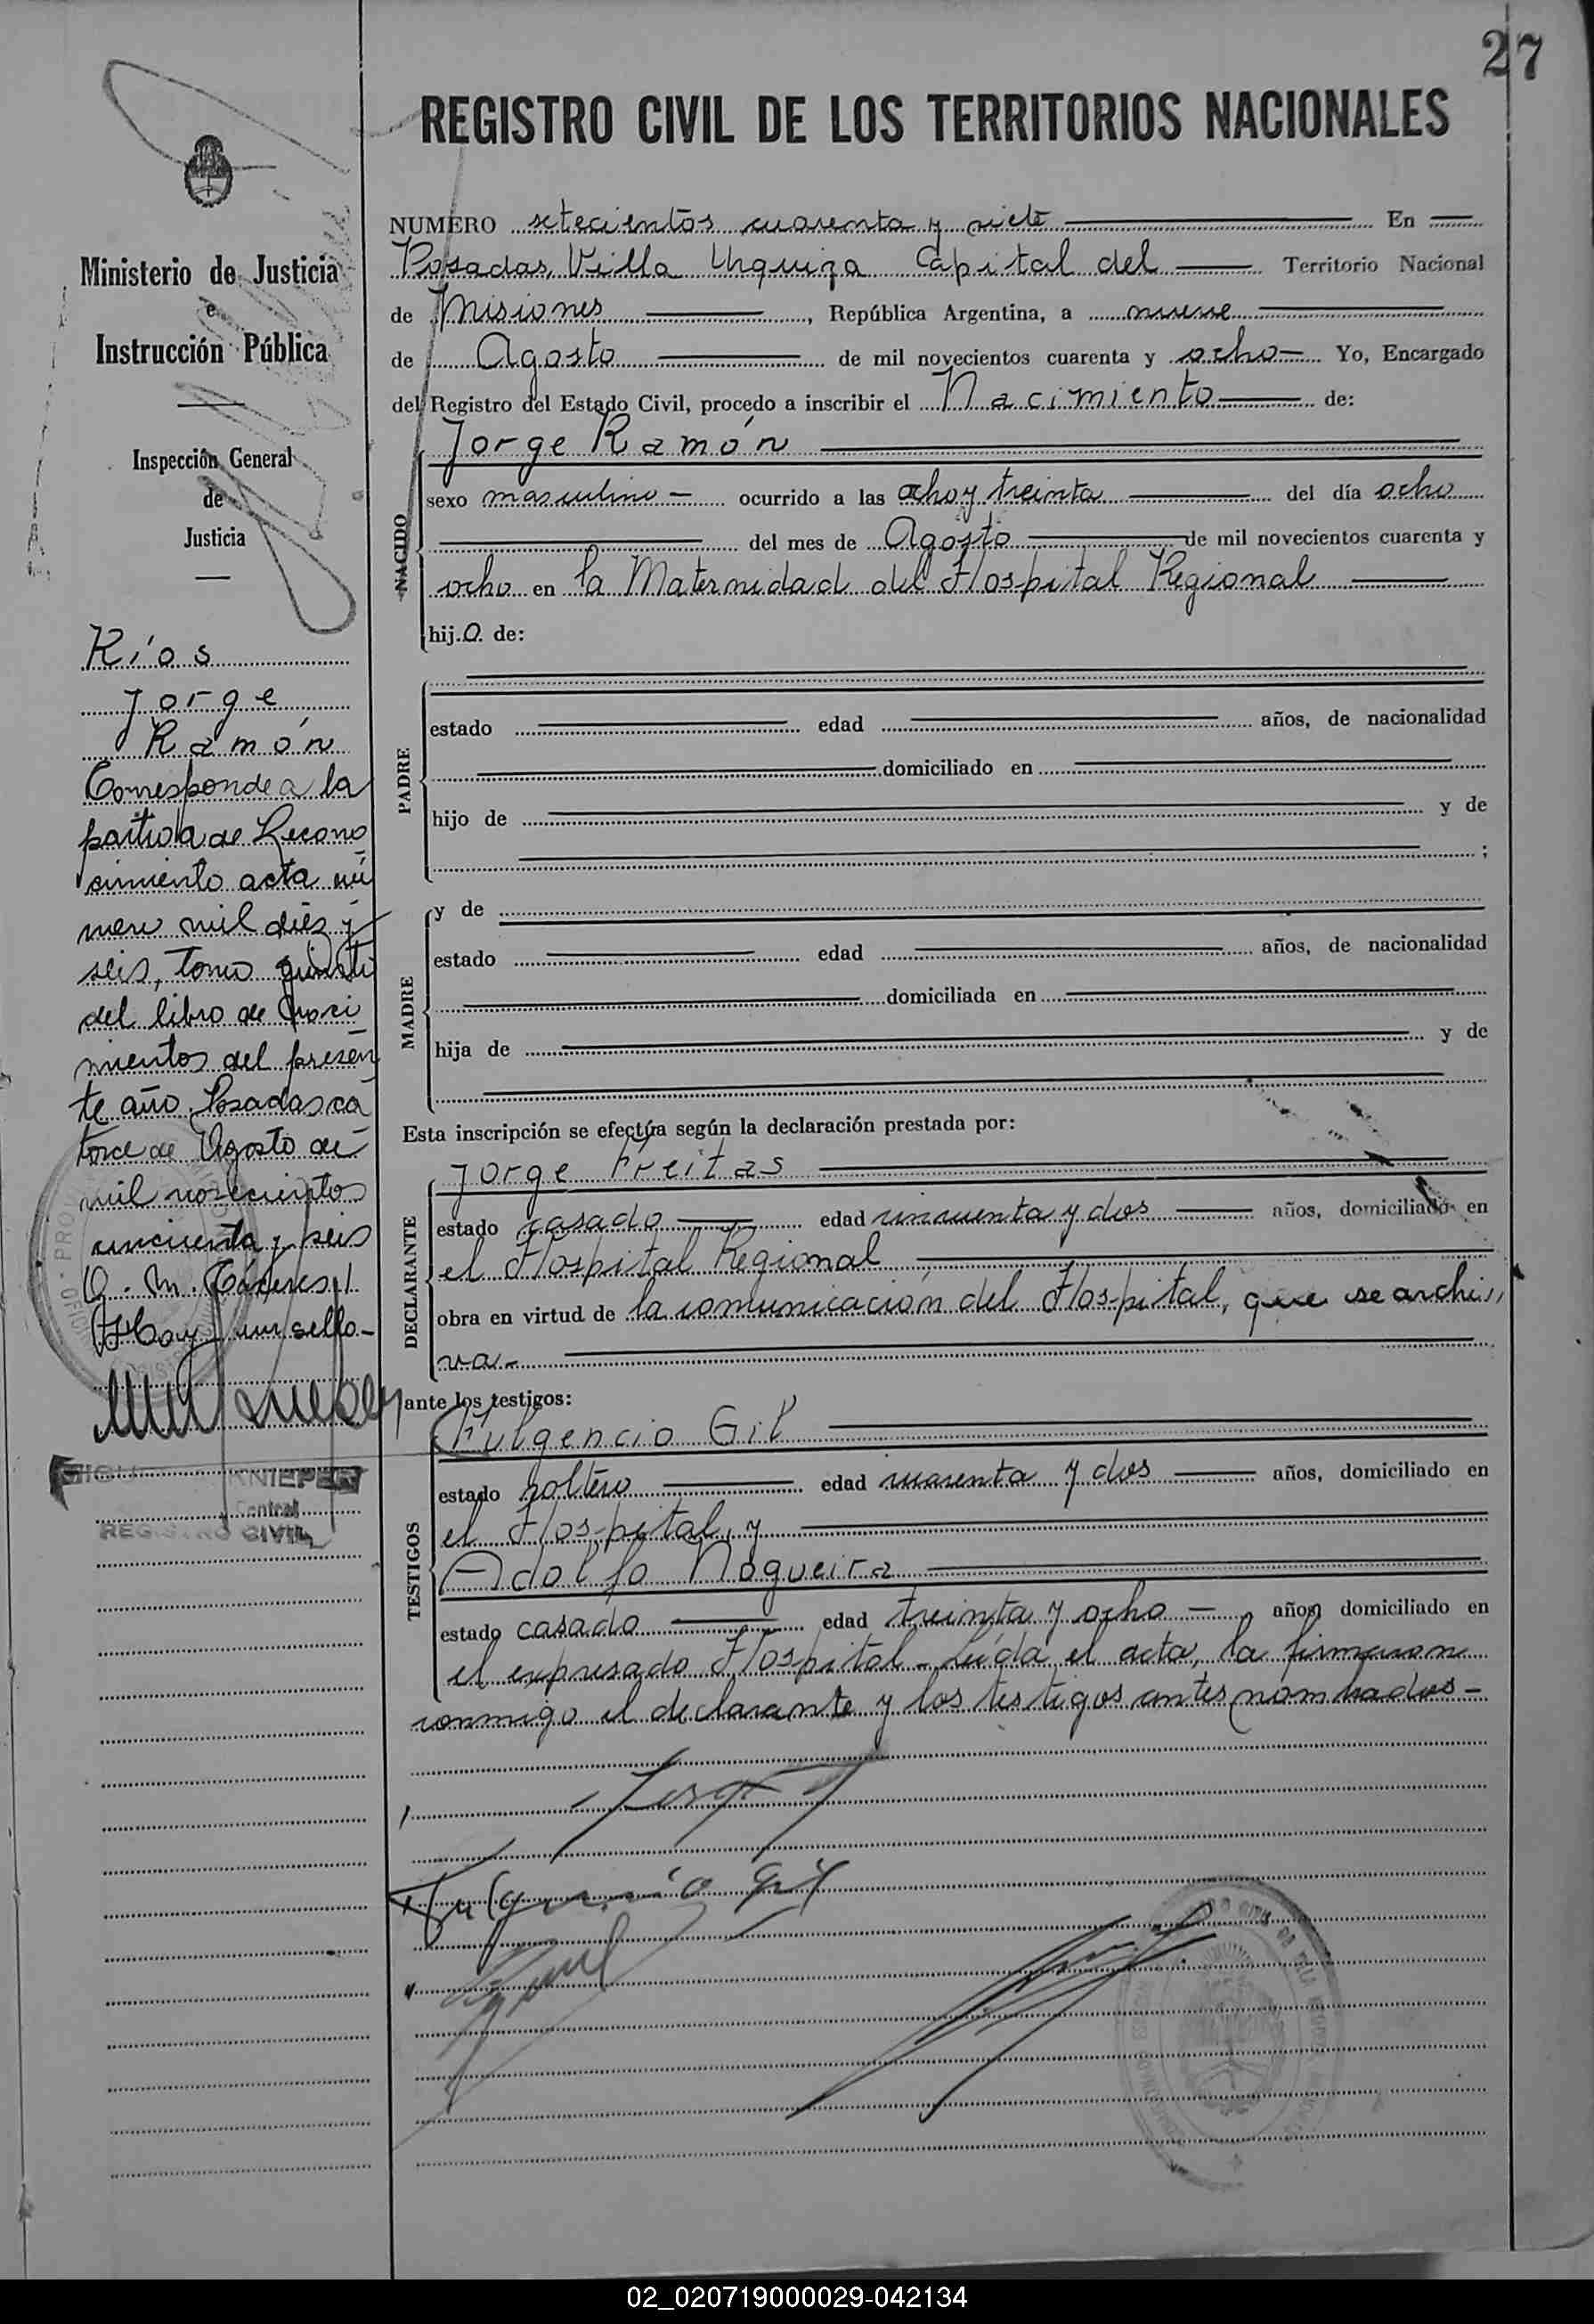 27
REGISTRO CIVIL DE LOS TERRITORIOS NACIONALES
Ministerio de Justicia
e
Instrucción Pública
Inspección General
de
Justicia
Ríos
Jorge
Ramón
Corresponde a la
partida de Recono
cimiento acta nú
mero mil diez y
seis, tomo quinto
del libro de Naci
mientos del presen
te año. Posadas ca
torce de Agosto de
mil novecientos
cincuenta y seis
O. M. Cáceres
Hay un sello-
KNIEPER
Central
REGISTRO CIVIL
NUMERO setecientos cuarenta y siete En
Posadas, Villa Urquiza Capital del Territorio Nacional
de Misiones, República Argentina, a nueve
de Agosto de mil novecientos cuarenta y ocho Yo, Encargado
del Registro del Estado Civil, procedo a inscribir el Nacimiento de:
NACIDO
Jorge Ramón
sexo masculino ocurrido a las ocho y treinta del día ocho
del mes de Agosto de mil novecientos cuarenta y
ocho en la Maternidad del Hospital Regional
hijo de:
PADRE
estado edad años, de nacionalidad
domiciliado en
hijo de y de
;
MADRE
y de
estado edad años, de nacionalidad
domiciliada en
hija de y de
Esta inscripción se efectúa según la declaración prestada por:
DECLARANTE
Jorge Freitas
estado casado edad cincuenta y dos años, domiciliado en
el Hospital Regional
obra en virtud de la comunicación del Hospital, que se archi,,
va.-
ante los testigos:
TESTIGOS
Fulgencio Gil
estado soltero edad cuarenta y dos años, domiciliado en
el Hospital, y
Adolfo Nogueira
estado casado edad treinta y ocho años, domiciliado en
el expresado Hospital - Leída el acta, la firmaron
conmigo el declarante y los testigos antes nombrados-
Fulgencio Gil
02_020719000029-042134